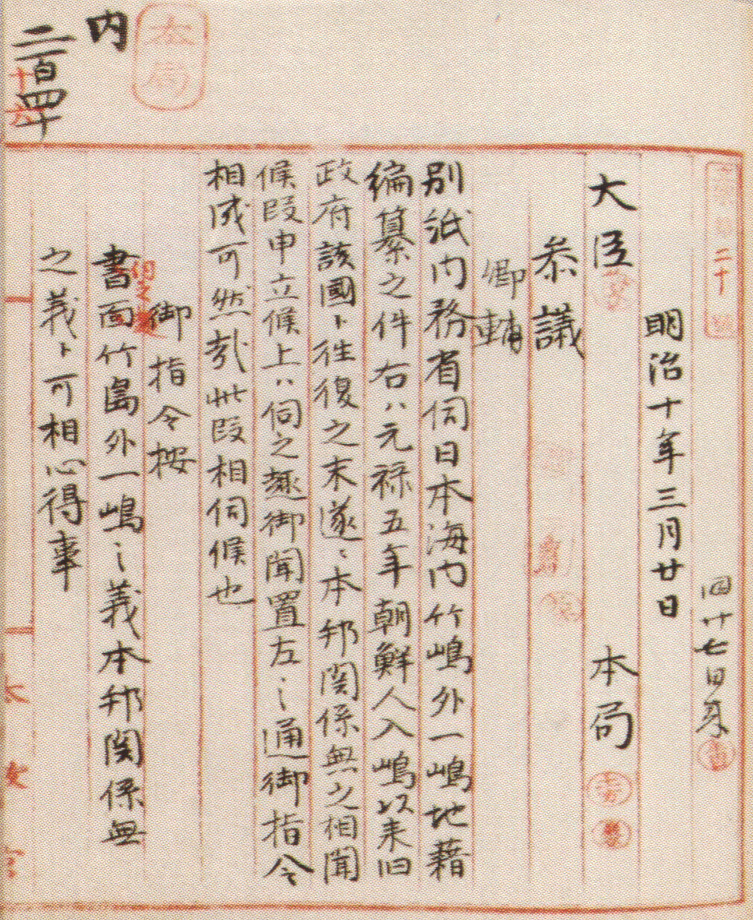 内
二百四十
本局
十六
二十
同廿七日来
明治十年三月廿日
大臣 本局
参議
卿輔
別紙内務省伺日本海内竹嶋外一嶋地籍
編纂之件右ハ元禄五年朝鮮人入嶋以来旧
政府該國ト往復之末遂ニ本邦関係無之相聞
候段申立候上ハ伺之趣御聞置左之通御指令
相成可然哉此段相伺候也
御指令按
伺之趣
書面竹島外一嶋之義本邦関係無
之義ト可相心得事
太政官